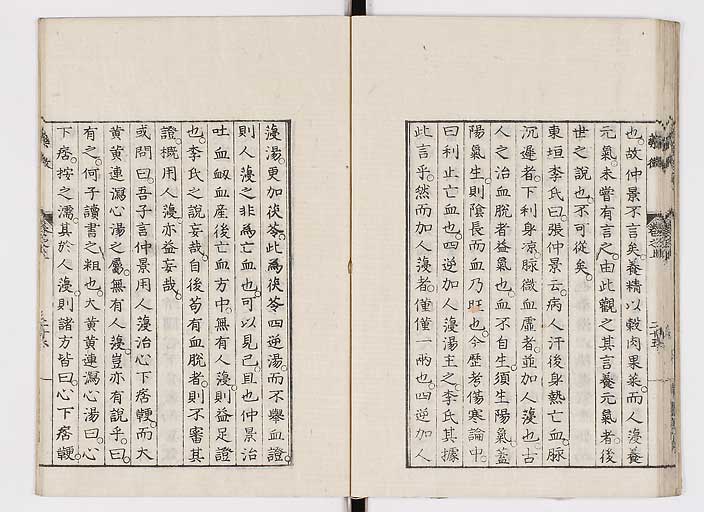 也。故仲景不言矣。養精以穀肉果菜。而人漫養
元氣。未嘗有言之。由此觀之。其言養元氣者。後
世之說也。不可從矣。
東垣李氏曰。張仲景云。病人汗後身熱亡血。脈
沉遲者。下利身凉。脈微血虛者。並加人漫也。古
人之治血脫者益氣也。血不自生。須生陽氣。蓋
陽氣生。則陰長而血乃旺也。今歷考傷寒論中。
曰利止亡血也。四逆加人漫湯主之。李氏其據
此言乎。然而加人漫者。僅僅一兩也。四逆加人
漫湯。更加茯苓。此爲茯苓四逆湯。而不舉血證。
則人漫之非爲亡血也。可以見已。且也仲景治
吐血衂血產後亡血方中。無有人漫。則益足證
也。李氏之說妄哉。自後苟有血脫者。則不審其
證。概用人漫。亦益妄哉。
或問曰。吾子言仲景用人漫治心下痞鞕。而大
黃黃連瀉心湯之屬。無有人漫。豈亦有說乎。曰
有之。何子讀書之粗也。大黃黃連瀉心湯曰。心
下痞。按之濡。其於人漫。則諸方皆曰。心下痞鞕。